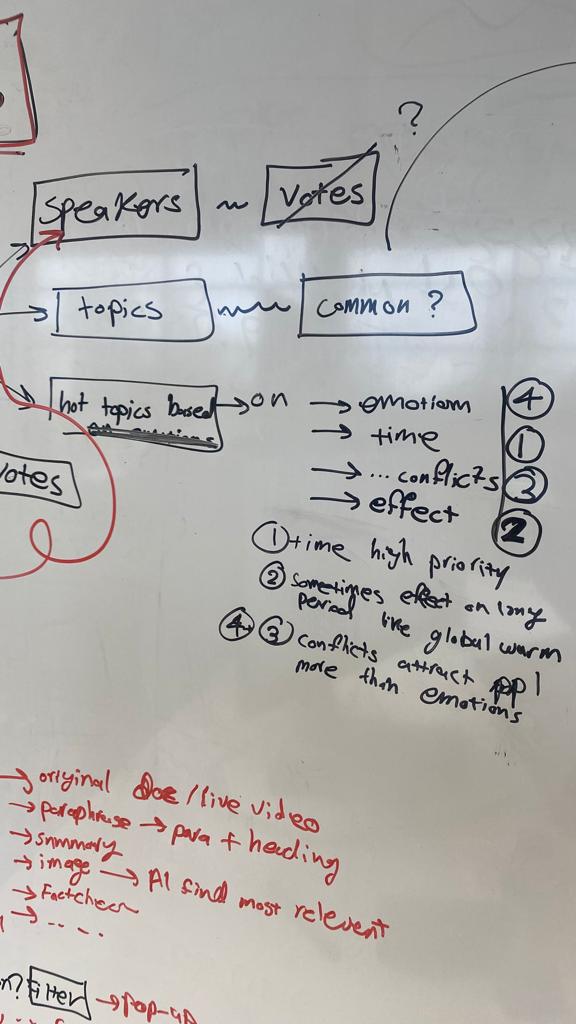 ?
speakers ~ votes
topics ~ common ?
hot topics based → on → emotion 4
→ time 1
→ ... conflicts 3
→ effect 2
votes
① time high priority
② sometimes effect on long
period like global warm
④ ③ conflicts attract ppl
more than emotions
→ original Doc / live video
→ paraphrase → para + heading
→ summary
→ image → AI find most relevent
→ Factcheck
→ ....
Filter → pop-up